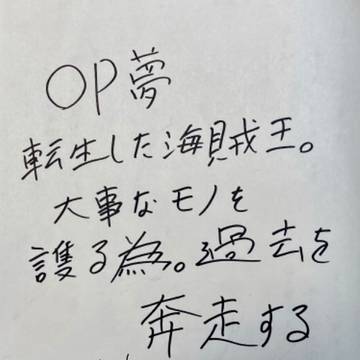 OP夢
転生した海賊王。
大事なモノを
護る為。過去を
奔走する